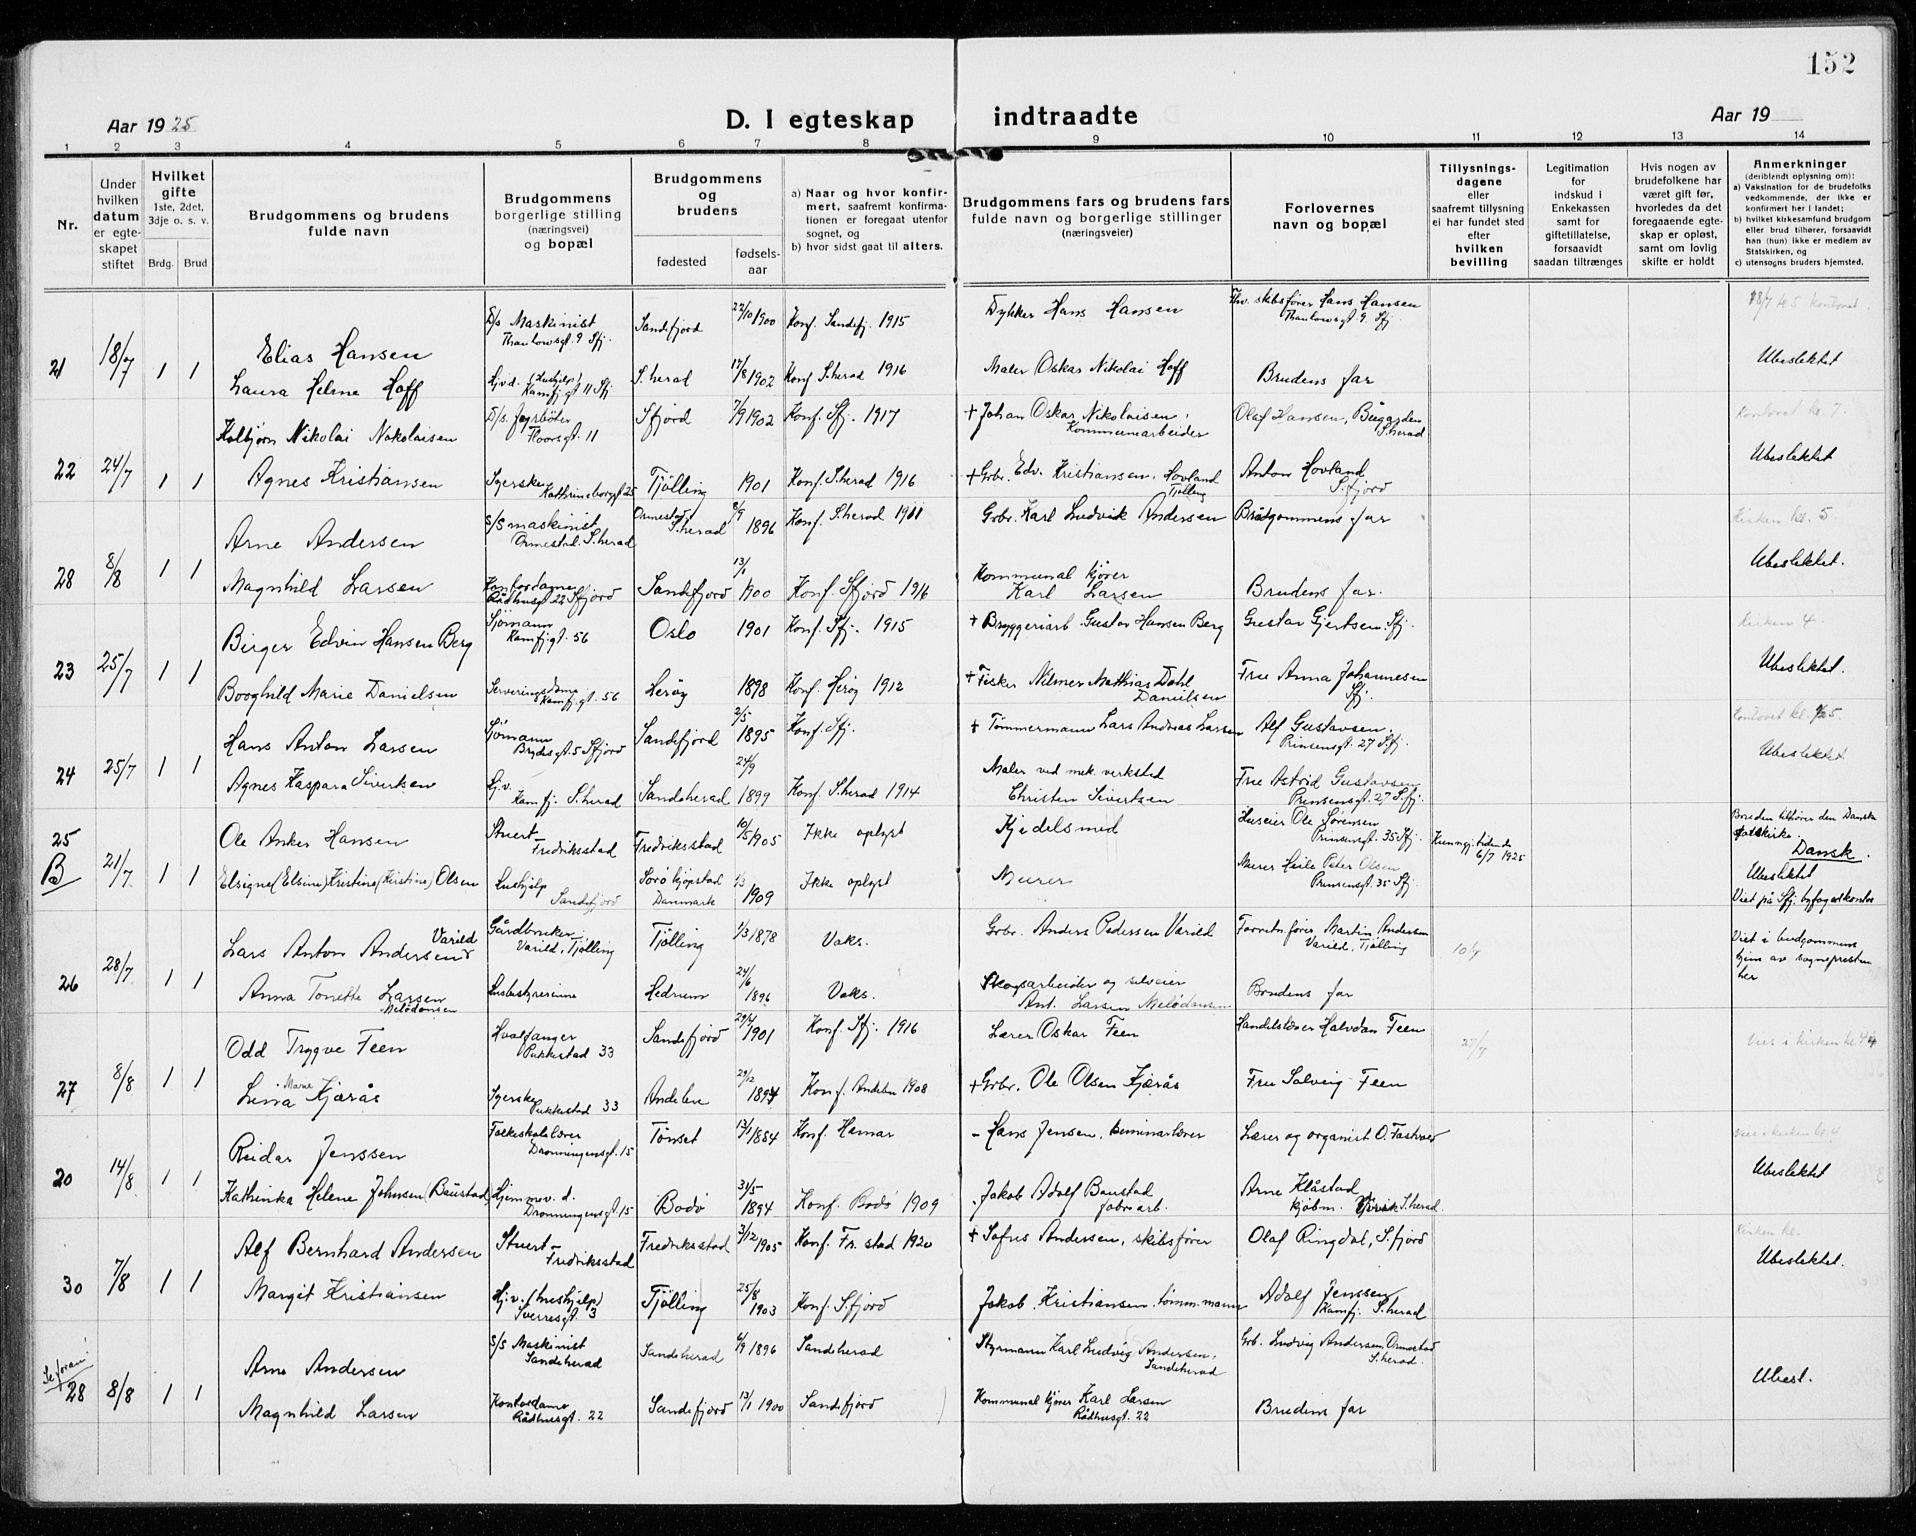 152
Aar 1925
D. I egteskap indtraadte
Aar 19
1 2 3 4 5 6 7 8 9 10 11 12 13 14
Nr.
Under hvilken datum er egteskapet stiftet
Hvilket gifte
1ste, 2det, 3dje o. s. v.
Brdg. Brud
Brudgommens og brudens fulde navn
Brudgommens borgerlige stilling (næringsvei) og bopæl
Brudgommens og brudens
fødested
fødsels-aar
a) Naar og hvor konfirmert, saafremt konfirmationen er foregaat utenfor sognet, og
b) hvor sidst gaat til alters.
Brudgommens fars og brudens fars fulde navn og borgerlige stillinger (næringsveier)
Forlovernes navn og bopæl
Tillysnings-dagene eller saafremt tillysning ei har fundet sted efter hvilken bevilling
Legitimation for indskud i Enkekassen samt for giftetillatelse, forsaavidt saadan tiltrænges
Hvis nogen av brudefolkene har været gift før, hvorledes da det foregaaende egteskap er opløst, samt om lovlig skifte er holdt
Anmerkninger (deriblendt oplysning om):
a) Vaksination for de brudefolks vedkommende, der ikke er konfirmert her i landet;
b) hvilket kirkesamfund brudgom eller brud tilhører, forsaavidt han (hun) ikke er medlem av Statskirken, og
c) utensogns bruders hjemsted.
21 18/7 1 1
Elias Hansen D/s Maskinist Thaulowsgt. 9 Sfj. Sandefjord 22/10 1900 Konf. Sandefj. 1915 Dykker Hans Hansen Fhv. skibsfører Hans Hansen Thaulowsgt. 9. Sfj.
Laura Helene Hoff Hjvd. (Hushjelp) Kamfj.gt 11 Sfj. S.herad 17/8 1902 Konf S.herad 1916 Maler Oskar Nikolai Hoff Brudens far Ubeslektet
22 24/7 1 1
Kolbjørn Nikolai Nikolaisen D/s. fyrbøter Floorsgt. 11 Sfjord 7/9 1902 Konf. Sfj. 1917 + Johan Oskar Nikolaisen, Kommunearbeider Olaf Hansen, Bugården S.herad
Agnes Kristiansen Syerske Kathrineborggt 25 Tjølling 1901 Konf. S.herad 1916 + Grbr. Edv. Kristiansen, Hovland Tjølling Anton Hovland S.fjord Ubeslektet
28 8/8 1 1
Arne Andersen S/S maskinist Ormestad. S.herad Ormestad S.herad 6/9 1896 Konf. S.herad 1911 Grbr. Karl Ludvik Andersen Brudgommens far Kirken kl. 5
Magnhild Larsen Kontordame Rådhusgt 22 Sfjord Sandefjord 13/1 1900 Konf. Sfjord 1916 Kommunal kjører Karl Larsen Brudens far. Ubeslektet.
23 25/7 1 1
Birger Edvin Hansen Berg Sjømann Kamfj.gt. 56 Oslo 1901 Konf. Sfj. 1915 + Bryggeriarb. Gustav Hansen Berg Gustav Gjertsen Sfj. Kirken 4.
Booghild Marie Danielsen Serveringsdame Kamfj.gt. 56 Herøy 1898 Konf. Herøy 1912 + Fisker Nilmer Matthias Dahl Danielsen Frue Anna Johannesen Sfj. Ubeslektet.
24 25/7 1 1
Hans Anton Larsen Sjømann Brydesgt. 5 Sfjord Sandefjord 2/5 1895 Konf. Sfj. + Tømmermann Lars Andreas Larsen Alf Gustavsen Prinsensgt. 27 Sfj.
Agnes Kaspara Sivertsen Hj.v. Kamfj. S.herad Sandeherad 24/9 1899 Konf. S.herad 1914 Maler ved mek. verksted Christen Sivertsen Frue Astrid Gustavsen Prinsensgt. 27 S.fj. Ubeslektet
25 B 21/7 1 1
Ole Anker Hansen Stuert Fredriksstad Fredriksstad 10/5 1905 Ikke oplyst Kjedelsmed Huseier Ole Sørensen Prinsensgt. 35 Sfj. Kunngj. tidende 6/7 1925 Bruden tilhører den Danske folkekirke. Dansk.
Elsigne (Elsine) Kristine (Kirstine) Olsen Hushjelp Sandefjord Sorø kjøpstad Danmark 1/3 1909 Ikke oplyst Murer Murer Peter Olsen Prinsensgt. 35 Sfj. Ubeslektet Viet på Sfj. byfogedkontor
26 28/7 1 1
Lars Anton Andersen Varild Gårdbruker Varild, Tjølling Tjølling 1/3 1878 Vaks. Grbr. Anders Pedersen Varild Forretn.fører Martin Andersen Varild, Tjølling 10/7 Viet i brudgommens hjem av sognepresten her
Anna Tonette Larsen Melødamsen Husbestyrerinne Hedrum 24/6 1896 Vaks. Skogsarbeider og selveier Ant. Larsen Melødamsen Brudens far
27 8/8 1 1
Odd Trygve Feen Hvalfanger Pukkestad 33 Sandefjord 29/4 1901 Konf. Sfj. 1916 Lærer Oskar Feen Handelslærer Halvdan Feen 27/7
Lina Marie Kjærås Syerske Pukkestad 33 Andebu 29/12 1894 Konf. Andebu 1908 + Grbr. Ole Olsen Kjærås Frue Solveig Feen
20 14/8 1 1
Reidar Jenssen Folkeskolelærer Dronningensgt. 15 Tønset 13/1 1884 Konf. Hamar - Hans Jensen, seminarlærer Lærer og organist O. Fastvold
Kathinka Helene Johnsen (Baustad) Hjemmev. d. Dronningensgt. 15 Bodø 31/5 1894 Konf. Bodø 1909 Jakob Adolf Baustad Arne Klåstad kjøbm. S.herad. Ubeslektet
30 7/8 1 1
Alf Bernhard Andersen Stuert Fredriksstad Fredriksstad 3/12 1905 Konf. Fr. stad 1920 + Sofus Andersen, skibsfører Olaf Ringdal, S.fjord Kirken kl.
Margit Kristiansen Hj.v. (hushjelp) Sverresgt. 3 Tjølling 25/8 1903 Konf. S.fjord Jakob Kristiansen, tømm.mann Adolf Jenssen Kamfj. S.herad Ubeslektet.
Se foran! 28 8/8 1 1
Arne Andersen S/S Maskinist Sandeherad Sandeherad 6/9 1896 Sandeherad Styrmann Karl Ludvig Andersen, Sandeherad Grb. Ludvig Andersen Ormestad S.herad.
Magnhild Larsen Kontordame Rådhusgt. 22 Sandefjord 13/1 1900 Sandefjord Kommunal kjører Karl Larsen Rådhusgt. 22 Brudens far Ubesl.